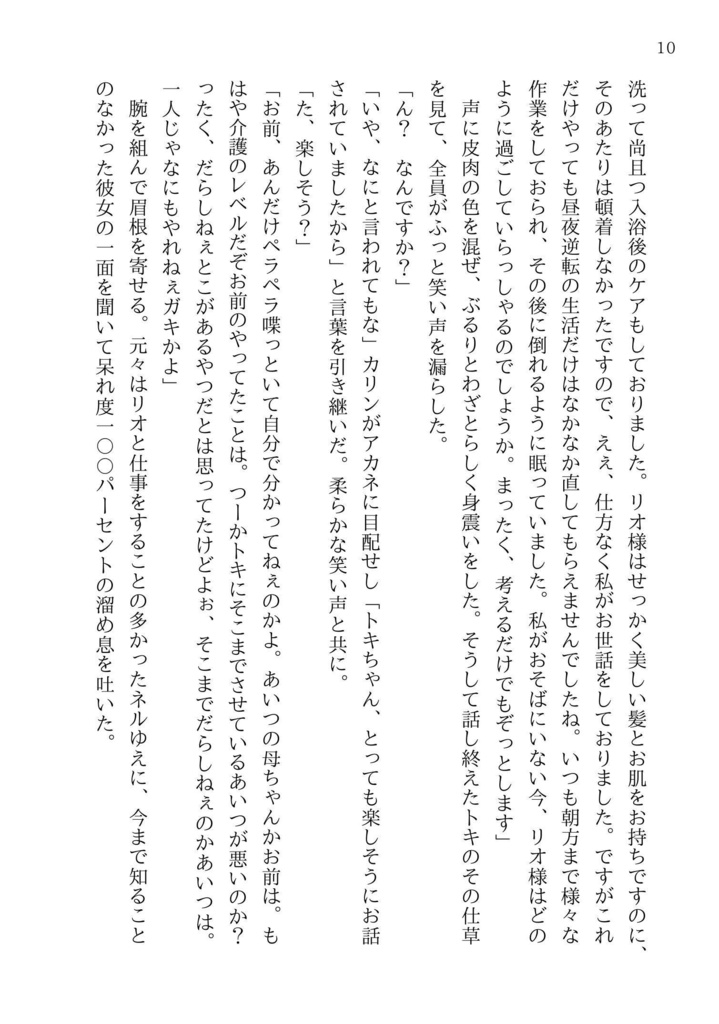 10
洗って尚且つ入浴後のケアもしておりました。リオ様はせっかく美しい髪とお肌をお持ちですのに、
そのあたりは頓着しなかったですので、えぇ、仕方なく私がお世話をしておりました。ですがこれ
だけやっても昼夜逆転の生活だけはなかなか直してもらえませんでしたね。いつも朝方まで様々な
作業をしておられ、その後に倒れるように眠っていました。私がおそばにいない今、リオ様はどの
ように過ごしていらっしゃるのでしょうか。まったく、考えるだけでもぞっとします」
　声に皮肉の色を混ぜ、ぶるりとわざとらしく身震いをした。そうして話し終えたトキのその仕草
を見て、全員がふっと笑い声を漏らした。
「ん？　なんですか？」
「いや、なにと言われてもな」カリンがアカネに目配せし「トキちゃん、とっても楽しそうにお話
されていましたから」と言葉を引き継いだ。柔らかな笑い声と共に。
「た、楽しそう？」
「お前、あんだけペラペラ喋っといて自分で分かってねぇのかよ。あいつの母ちゃんかお前は。も
はや介護のレベルだぞお前のやってたことは。つーかトキにそこまでさせているあいつが悪いのか？
ったく、だらしねぇとこがあるやつだとは思ってたけどよぉ、そこまでだらしねぇのかあいつは。
一人じゃなにもやれねぇガキかよ」
　腕を組んで眉根を寄せる。元々はリオと仕事をすることの多かったネルゆえに、今まで知ること
のなかった彼女の一面を聞いて呆れ度一〇〇パーセントの溜め息を吐いた。